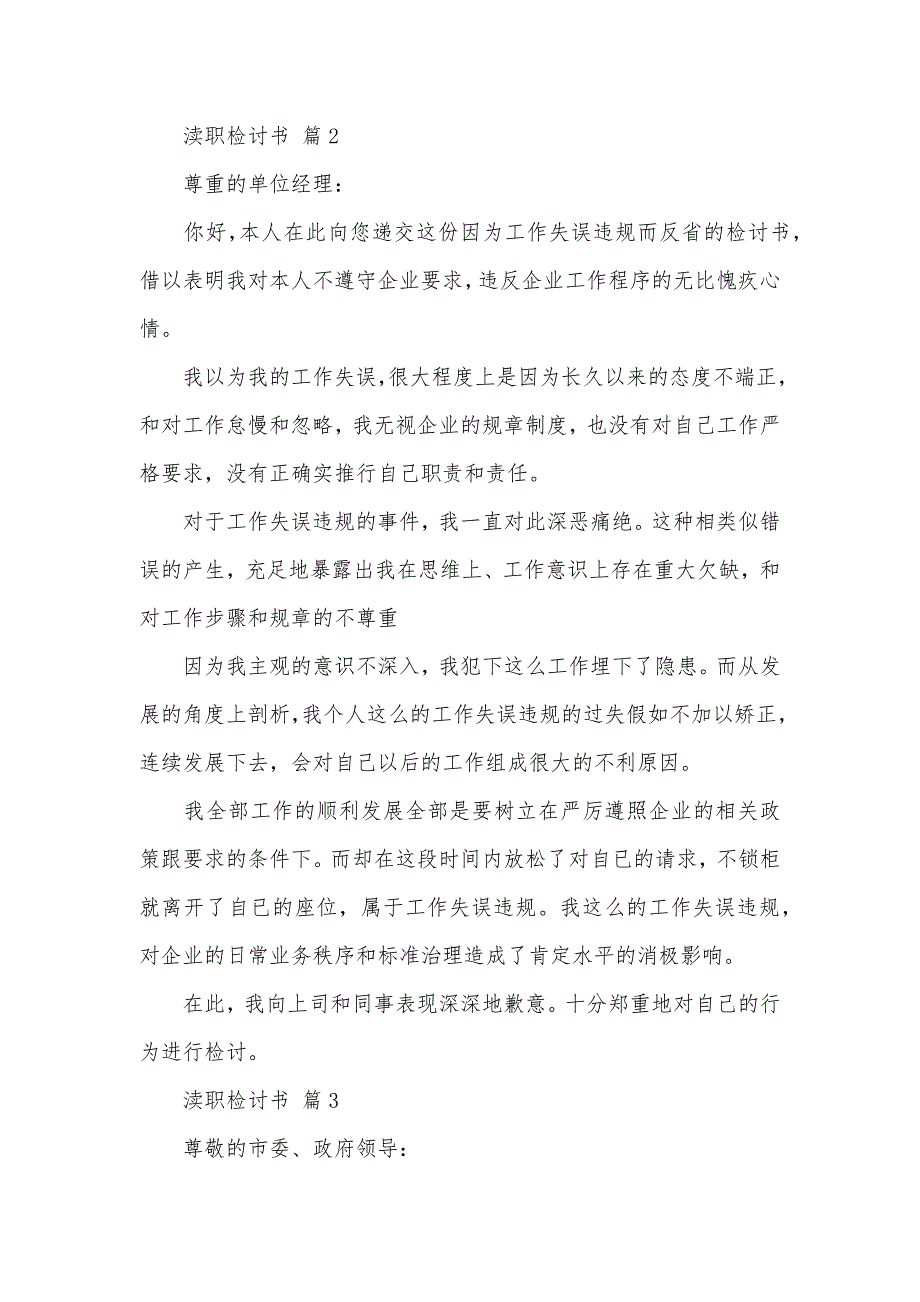 渎职检讨书 篇2
尊重的单位经理:
你好,本人在此向您递交这份因为工作失误违规而反省的检讨书,
借以表明我对本人不遵守企业要求,违反企业工作程序的无比愧疚心
情。
我以为我的工作失误,很大程度上是因为长久以来的态度不端正,
和对工作怠慢和忽略，我无视企业的规章制度，也没有对自己工作严
格要求，没有正确实推行自己职责和责任。
对于工作失误违规的事件，我一直对此深恶痛绝。这种相类似错
误的产生，充足地暴露出我在思维上、工作意识上存在重大欠缺，和
对工作步骤和规章的不尊重
因为我主观的意识不深入，我犯下这么工作埋下了隐患。而从发
展的角度上剖析,我个人这么的工作失误违规的过失假如不加以矫正，
连续发展下去，会对自己以后的工作组成很大的不利原因。
我全部工作的顺利发展全部是要树立在严厉遵照企业的相关政
策跟要求的条件下。而却在这段时间内放松了对自已的请求，不锁柜
就离开了自已的座位，属于工作失误违规。我这么的工作失误违规，
对企业的日常业务秩序和标准治理造成了肯定水平的消极影响。
在此，我向上司和同事表现深深地歉意。十分郑重地对自己的行
为进行检讨。
渎职检讨书 篇3
尊敬的市委、政府领导: